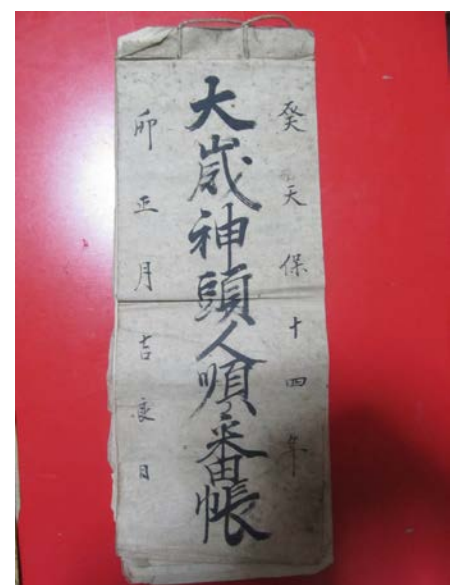 癸天保十四年
大歳神頭人順番帳
卯正月吉良日